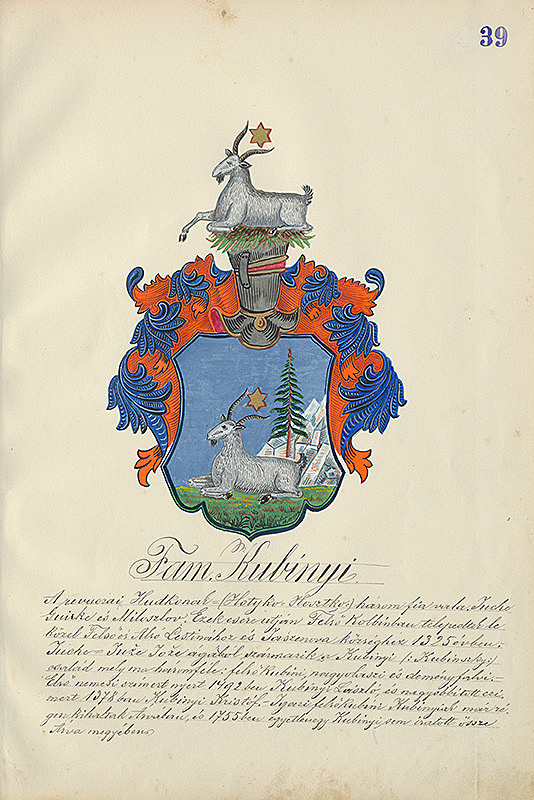 39
Fam. Kubínyi
A revucrai Hudkonak = (Hotyko = Hosztko) három fia vala, Jucho
Guirke és Miloszlov. Ezek csere utján Felső Kolbinban telepedtek le
közel Felső és Alsó Lestinához és Jaszenova községhez 1325 évben.
Jucho = Juže Jože ágakol származik a Kubinyi /: Kubinszky:/
család mely ma háromféle: felső kubini, nagyolaszi és deményfalvi –
Első nemesi czímert nyert 1492 ben Kubinyi László, és nagyobbitott czi
mert 1378 ban Kubinyi Kristóf. Igazi felsőkubini Kubinyiak már ré
gen kihaltak Árvában, és 1755 ben egyetlenegy Kubinyi sem iratott össze
Árva megyében.